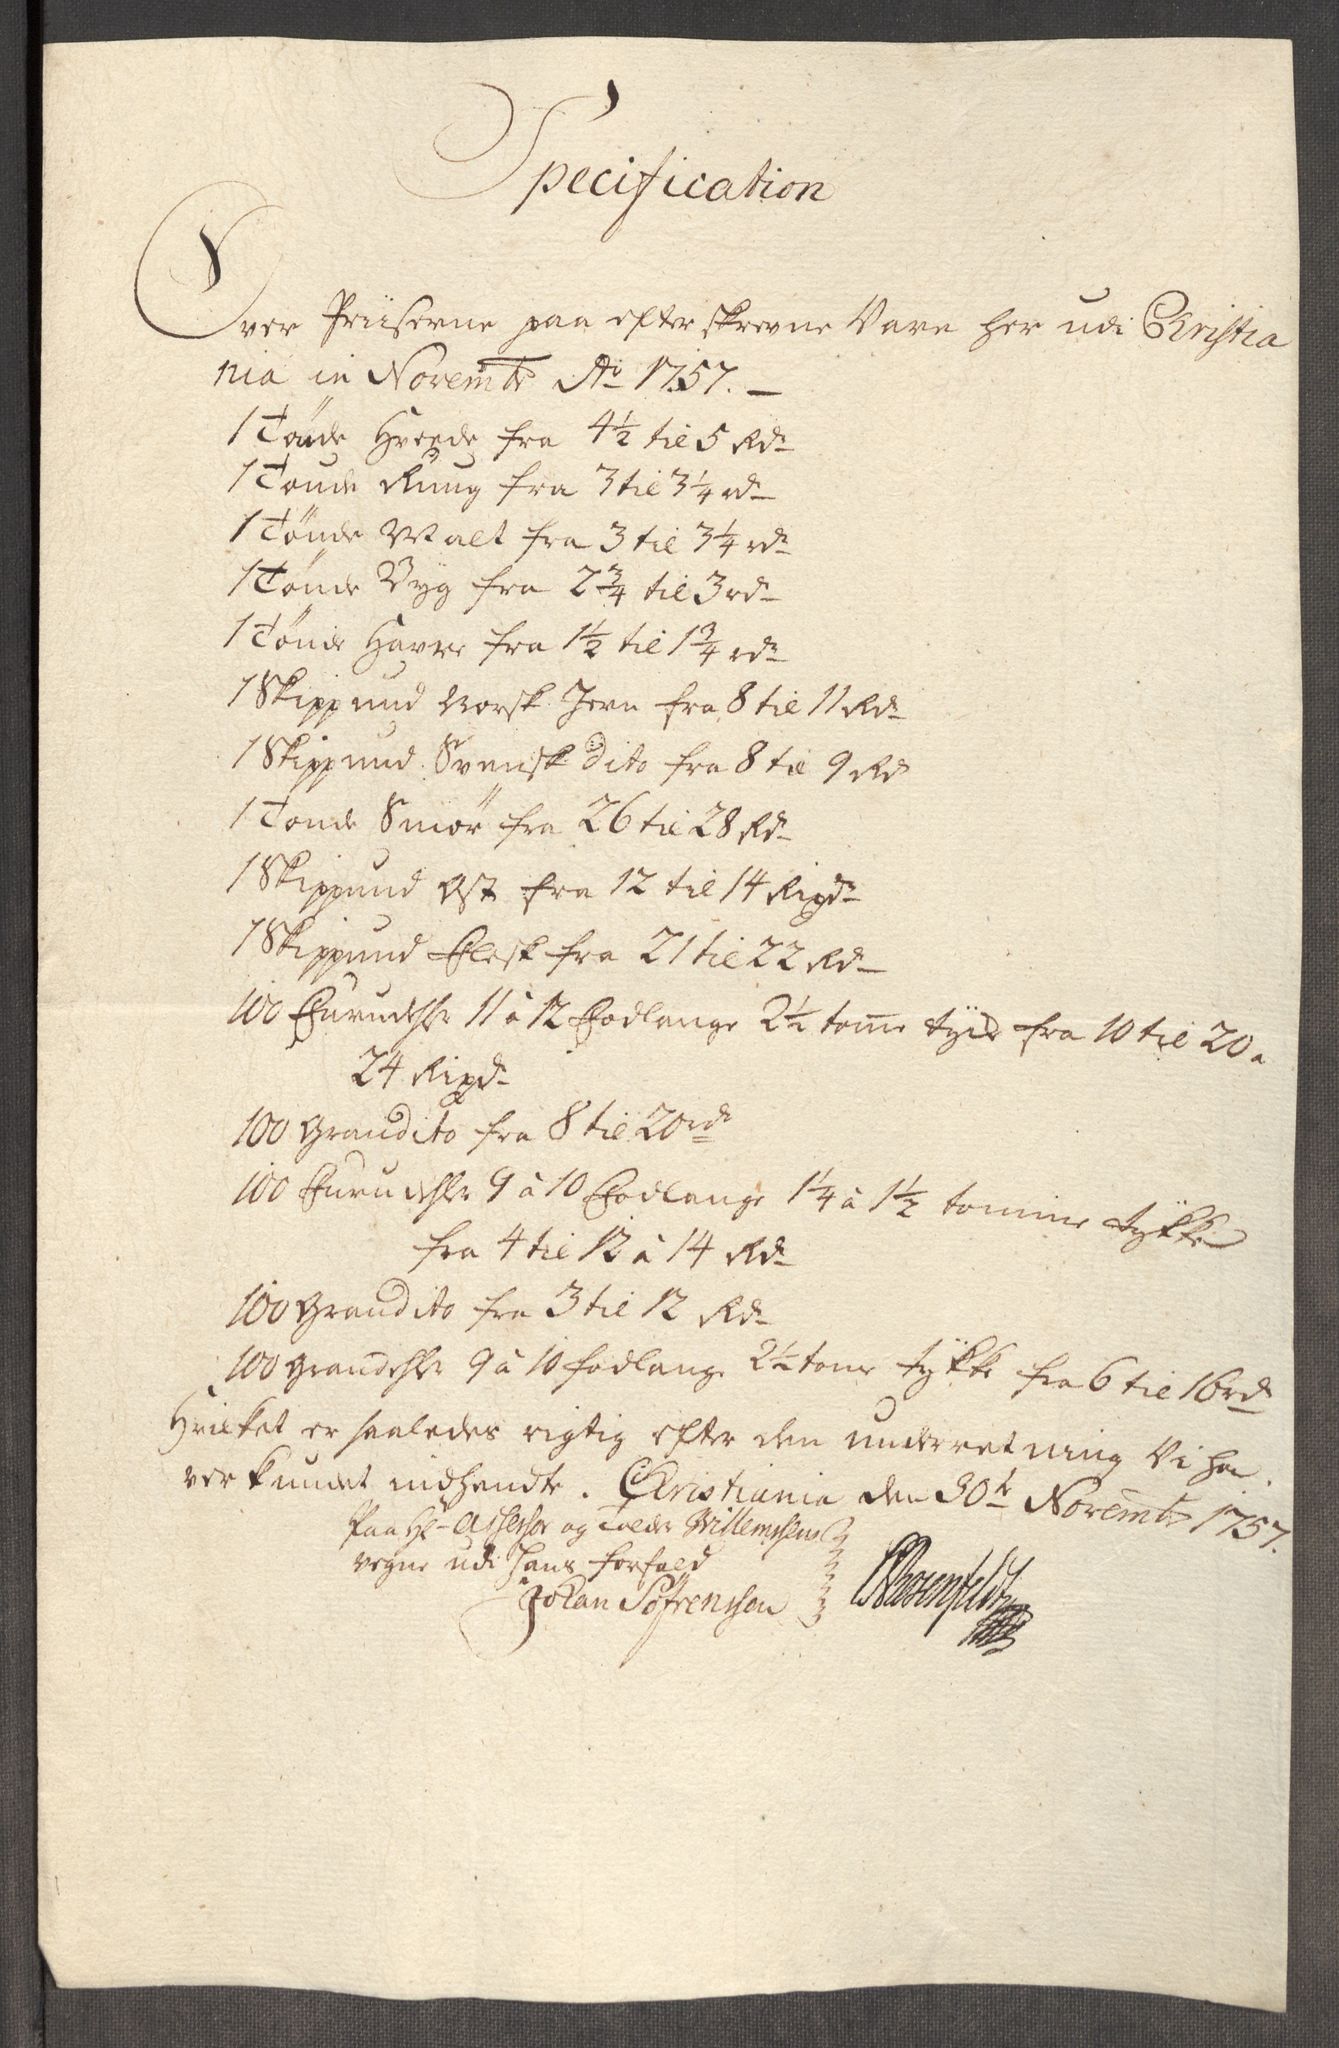 Specification
Over Priiserne paa efterskrevne Vare her udi Christia
nia in Novembr Ao 1757. —
1 Tönde Hvede fra 4½ til 5 Rdr
1 Tönde Rüüg fra 3 til 3¼ rdr
1 Tönde Malt fra 3 til 3¼ rdr
1 Tönde Byg fra 2¾ til 3 rdr
1 Tönde Havre fra 1½ til 1¾ rdr
1 Skippund Norsk Jern fra 8 til 11 Rdr
1 Skippund Svensk dito fra 8 til 9 Rd
1 Tonde Smör fra 26 til 28 Rdr
1 Skippund Ost fra 12 til 14 Rixdr
1 Skippund Flesk fra 21 til 22 Rdr
100 Furudehle 11 à 12 Fodlange 2½ tomme tyck fra 10 til 20 a
24 Rixdr
100 Grandito fra 8 til 20 rdr
100 Furudehle 9 à 10 Fodlange 1¼ à 1½ tomme tykke
fra 4 til 12 à 14 Rdr
100 Grandito fra 3 til 12 Rdr
100 Grandehle 9 à 10 fodlange 2½ tome tykke fra 6 til 16 rdr
Hvilket er saaledes rigtig efter den underretning Vi ha
ver kundet indhendte. Christiania den 30te Novembr 1757.
Paa Hr Assessor og Tolder Willemsens
vegne udi hans forfald
Johan Söfrenssen